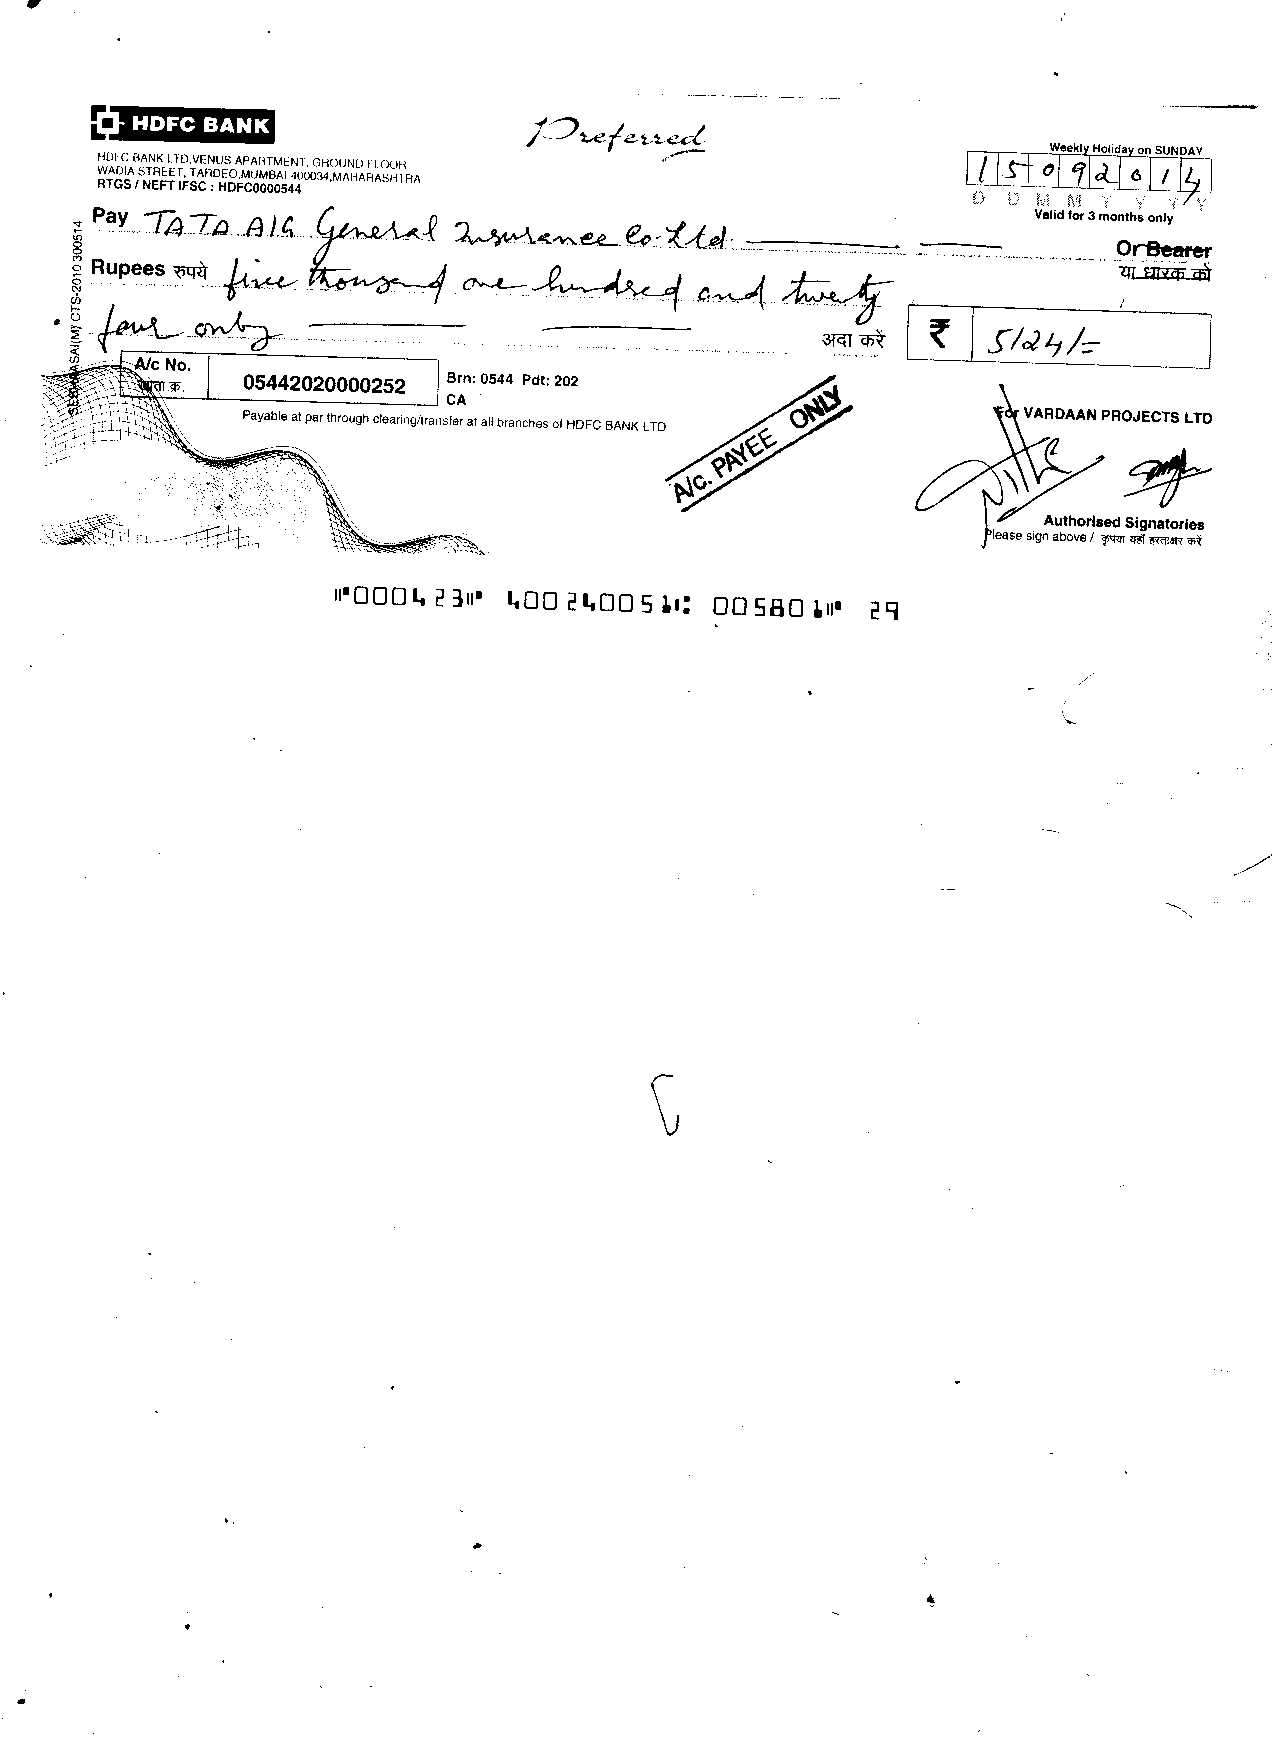 HDFC BANK
Preferred
HDFC BANK LTD,VENUS APARTMENT, GROUND FLOOR
WADIA STREET, TARDEO,MUMBAI 400034,MAHARASHTRA
RTGS / NEFT IFSC : HDFC0000544
Weekly Holiday on SUNDAY
15092014
D D M M Y Y Y Y
Valid for 3 months only
Pay TATA AIG General Insurance Co. Ltd.
Or Bearer
या धारक को
Rupees रुपये five thousand one hundred and twety
four only
अदा करें ₹ 5124/=
A/c No.
खाता क्र.
05442020000252
Brn: 0544 Pdt: 202
CA
Payable at par through clearing/transfer at all branches of HDFC BANK LTD
A/c. PAYEE ONLY
For VARDAAN PROJECTS LTD
Authorised Signatories
Please sign above / कृपया यहाँ हस्ताक्षर करें
CTS-2010 300514
⑈000423⑈ 400240051⑆ 005801⑈ 29